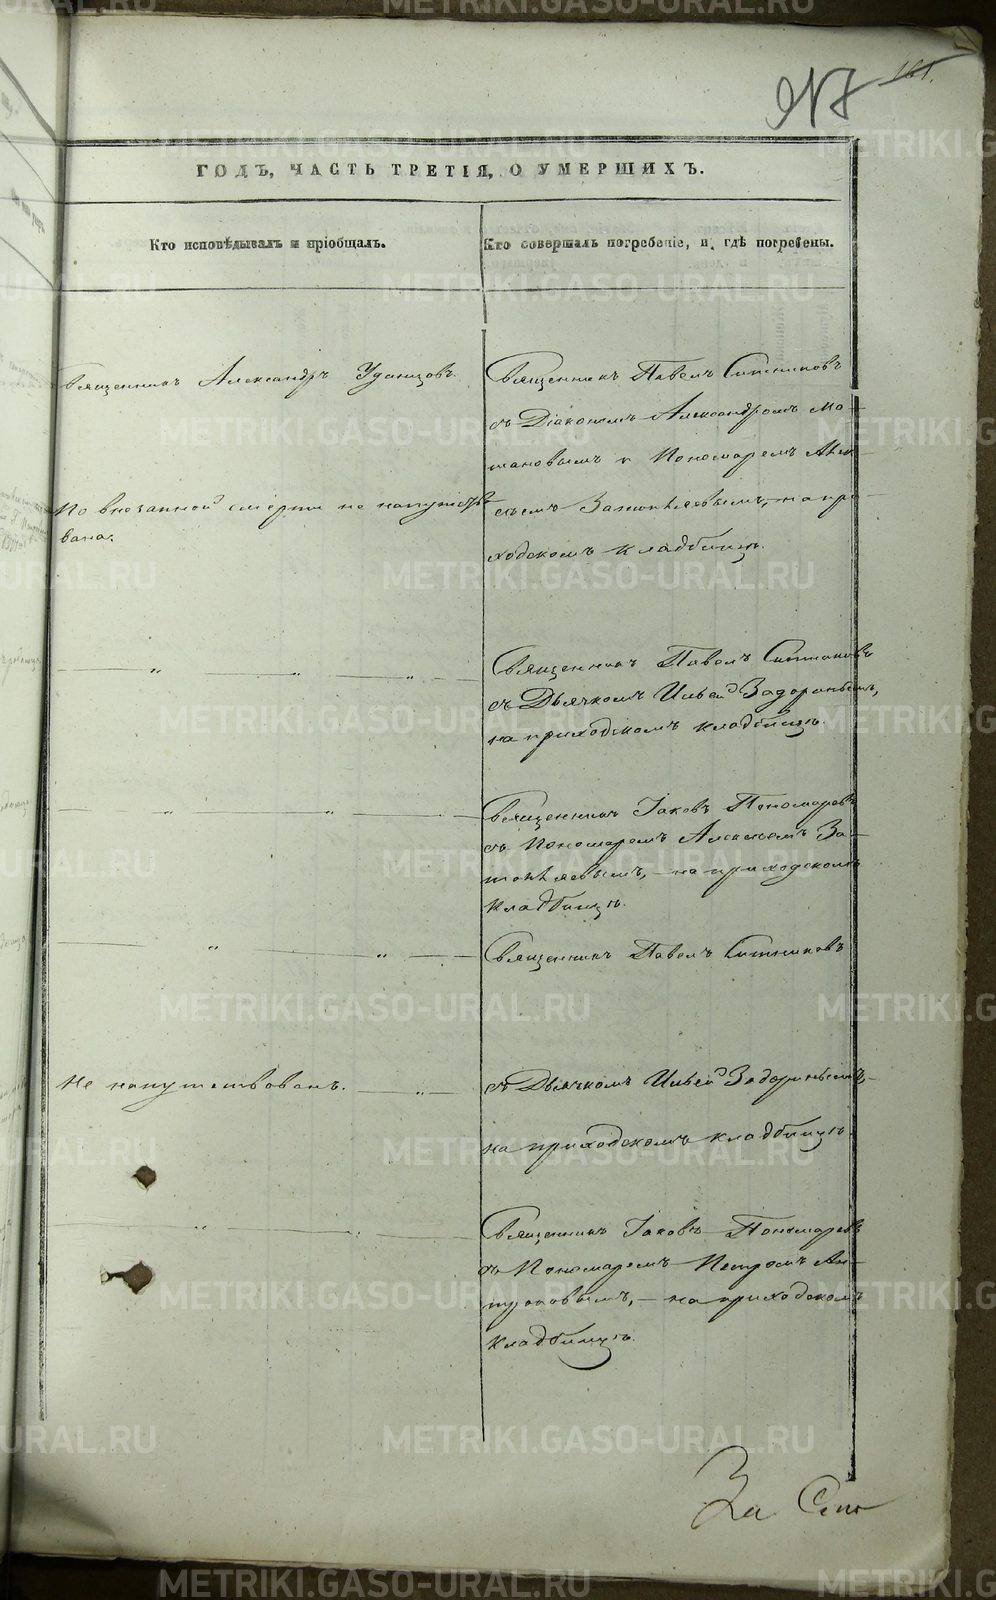 161.
ГОДЪ, ЧАСТЬ ТРЕТІЯ, О УМЕРШИХЪ.
Кто исповѣдывалъ и пріобщалъ.
Кто совершалъ погребеніе, и гдѣ погребены.
Священникъ Александръ Удинцовъ.
Священникъ Павелъ Ситниковъ
съ Діакономъ Александромъ Мо-
и Пономаремъ Алек-
По внезапной смерти не напутство-
вана.
сѣемъ на при-
ходскомъ кладбищѣ.
Священникъ Павелъ Ситниковъ
съ Дьячкомъ Ильей Задоринымъ,
на приходскомъ кладбищѣ.
Священникъ Іаковъ Пономаревъ
съ Пономаремъ Алексѣемъ За-
топляевымъ, – на приходскомъ
кладбищѣ.
Священникъ Павелъ Ситниковъ
Не напутствованъ.
съ Дьячкомъ Ильей Задоринымъ, –
на приходскомъ кладбищѣ.
Священникъ Іаковъ Пономаревъ
съ Пономаремъ Петромъ Ан-
троповымъ, – на приходскомъ
кладбищѣ.
За
METRIKI.GASO-URAL.RU